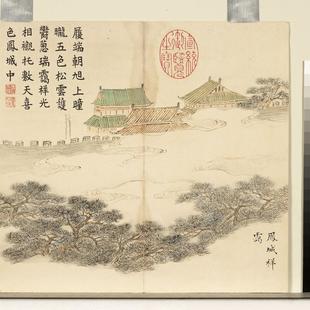 履端朝旭上曈
曨五色松雲護
鬱蔥瑞靄祥光
相襯托敷天喜
色鳳城中
鳳城祥
靄